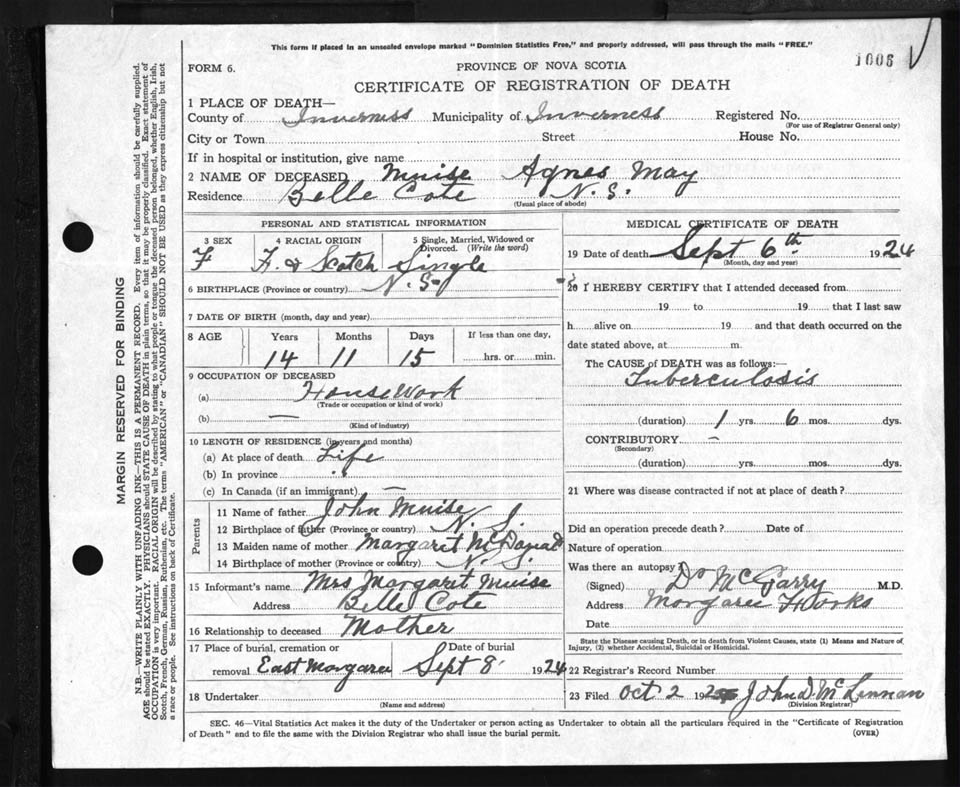 This form if placed in an unsealed envelope marked "Dominion Statistics Free," and properly addressed, will pass through the mails "FREE."
1006
FORM 6.
PROVINCE OF NOVA SCOTIA
CERTIFICATE OF REGISTRATION OF DEATH
1 PLACE OF DEATH—
County of Inverness Municipality of Inverness Registered No.
(For use of Registrar General only)
City or Town Street House No.
If in hospital or institution, give name
2 NAME OF DECEASED Muise Agnes May
Residence Belle Cote N.S.
(Usual place of abode)
PERSONAL AND STATISTICAL INFORMATION
3 SEX 4 RACIAL ORIGIN 5 Single, Married, Widowed or Divorced. (Write the word)
F F. & Scotch Single
6 BIRTHPLACE (Province or country) N.S.
7 DATE OF BIRTH (month, day and year)
8 AGE Years Months Days If less than one day,
14 11 15 hrs. or min.
9 OCCUPATION OF DECEASED
(a) Housework
(Trade or occupation or kind of work)
(b) —
(Kind of industry)
10 LENGTH OF RESIDENCE (in years and months)
(a) At place of death Life
(b) In province "
(c) In Canada (if an immigrant) —
Parents
11 Name of father John Muise
12 Birthplace of father (Province or country) N.S.
13 Maiden name of mother Margaret
14 Birthplace of mother (Province or country) N.S.
15 Informant's name Mrs Margaret Muise
Address Belle Cote
16 Relationship to deceased Mother
17 Place of burial, cremation or removal East Margaree
Date of burial Sept 8 1924
18 Undertaker
(Name and address)
MEDICAL CERTIFICATE OF DEATH
19 Date of death Sept 6th 1924
(Month, day and year)
20 I HEREBY CERTIFY that I attended deceased from
19 to 19 that I last saw
h alive on 19 and that death occurred on the
date stated above, at m.
The CAUSE of DEATH was as follows:—
Tuberculosis
(duration) 1 yrs. 6 mos. dys.
CONTRIBUTORY —
(Secondary)
(duration) yrs. mos. dys.
21 Where was disease contracted if not at place of death?
Did an operation precede death? Date of
Nature of operation
Was there an autopsy?
(Signed) Dr McGarry M.D.
Address Margaree Forks
Date
State the Disease causing Death, or in death from Violent Causes, state (1) Means and Nature of
Injury, (2) whether Accidental, Suicidal or Homicidal.
22 Registrar's Record Number
23 Filed Oct 2 192 John D. McLennan
(Division Registrar)
SEC. 46—Vital Statistics Act makes it the duty of the Undertaker or person acting as Undertaker to obtain all the particulars required in the "Certificate of Registration
of Death" and to file the same with the Division Registrar who shall issue the burial permit.
(OVER)
MARGIN RESERVED FOR BINDING
N.B.—WRITE PLAINLY WITH UNFADING INK—THIS IS A PERMANENT RECORD. Every item of information should be carefully supplied.
AGE should be stated EXACTLY. PHYSICIANS should STATE CAUSE OF DEATH in plain terms, so that it may be properly classified. Exact statement of
OCCUPATION is very important. RACIAL ORIGIN will be described by stating to what people or tongue the deceased person belonged, whether English, Irish,
Scotch, French, German, Russian, Ruthenian, etc. The terms "AMERICAN" or "CANADIAN" SHOULD NOT BE USED as they express citizenship but not
a race or people. See instructions on back of Certificate.